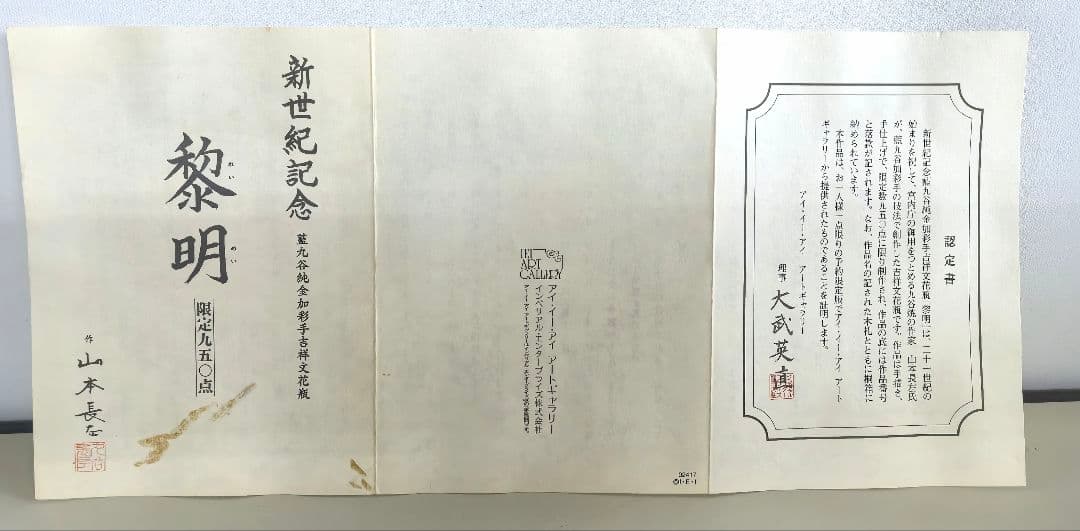 認定書
新世紀記念藍九谷純金加彩手吉祥文花瓶「黎明」は、二十一世紀の
始まりを祝して、宮内庁の御用をつとめる九谷焼の作家 山本長左氏
が、藍九谷加彩手の技法で創作した吉祥文花瓶です。作品は手描き、
手仕上げで、限定数九五〇点に限り創作され、作品の底には作品番号
と落款が記されます。なお、作品名の記された木札とともに桐箱に
納められています。
本作品は、お一人様一点限りの予約限定版でアイ・イー・アイ アート
ギャラリーから提供されたものであることを証明します。
アイ・イー・アイ アートギャラリー
理事 大武英直
IEI
ART
GALLERY
アイ・イー・アイ アートギャラリー
インペリアル・エンタープライズ株式会社
02417
©I・E・I
新世紀記念
藍九谷純金加彩手吉祥文花瓶
黎明
れい
めい
限定九五〇点
作 山本長左